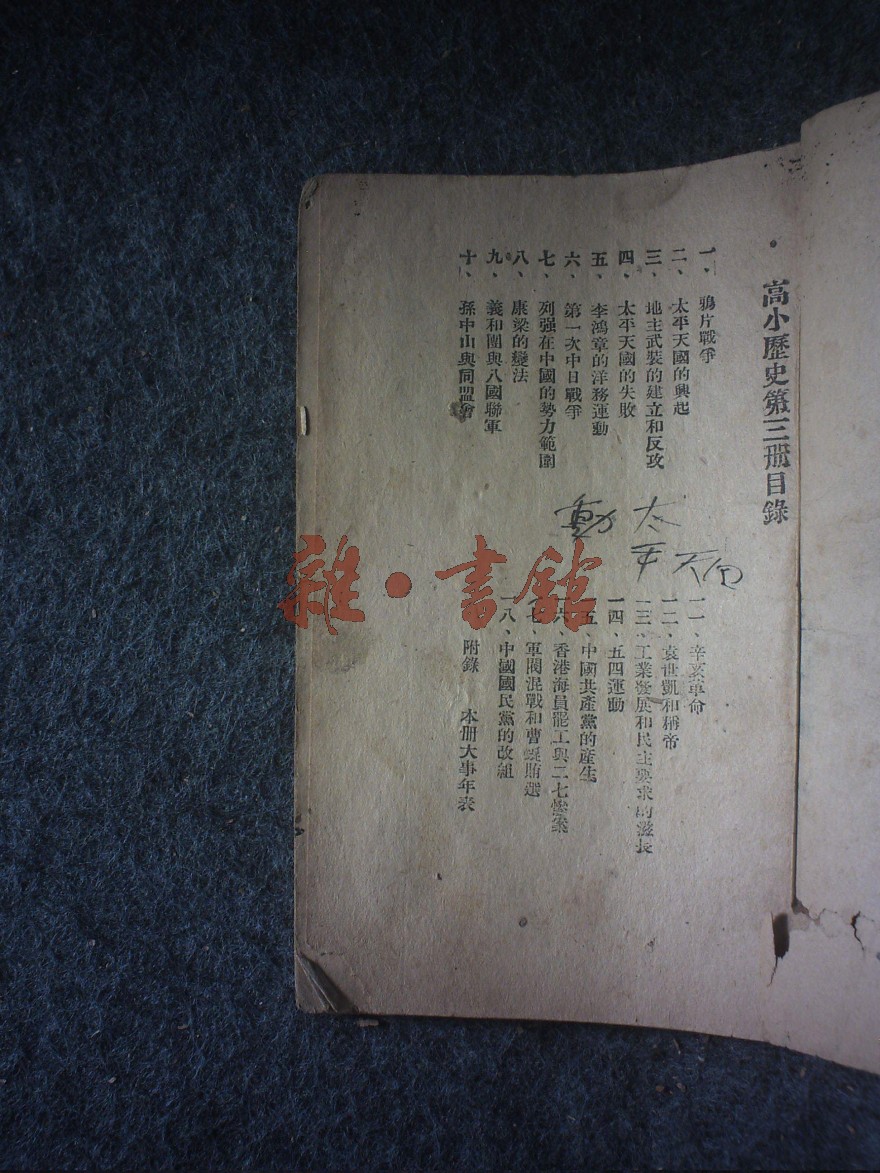 高小歷史第三册目錄
一、鴉片戰爭
二、太平天國的興起
三、地主武裝的建立和反攻
四、太平天國的失敗
五、李鴻章的洋務運動
六、第一次中日戰爭
七、列强在中國的勢力範圍
八、康梁的變法
九、義和團與八國聯軍
十、孫中山與同盟會
一一、辛亥革命
一二、袁世凱和稱帝
一三、工業發展和民主要求的滋長
一四、五四運動
一五、中國共產黨的產生
一六、香港海員罷工與二七慘案
一七、軍閥混戰和曹錕賄選
一八、中國國民黨的改組
附錄 本册大事年表
太平天
動
雜·書館